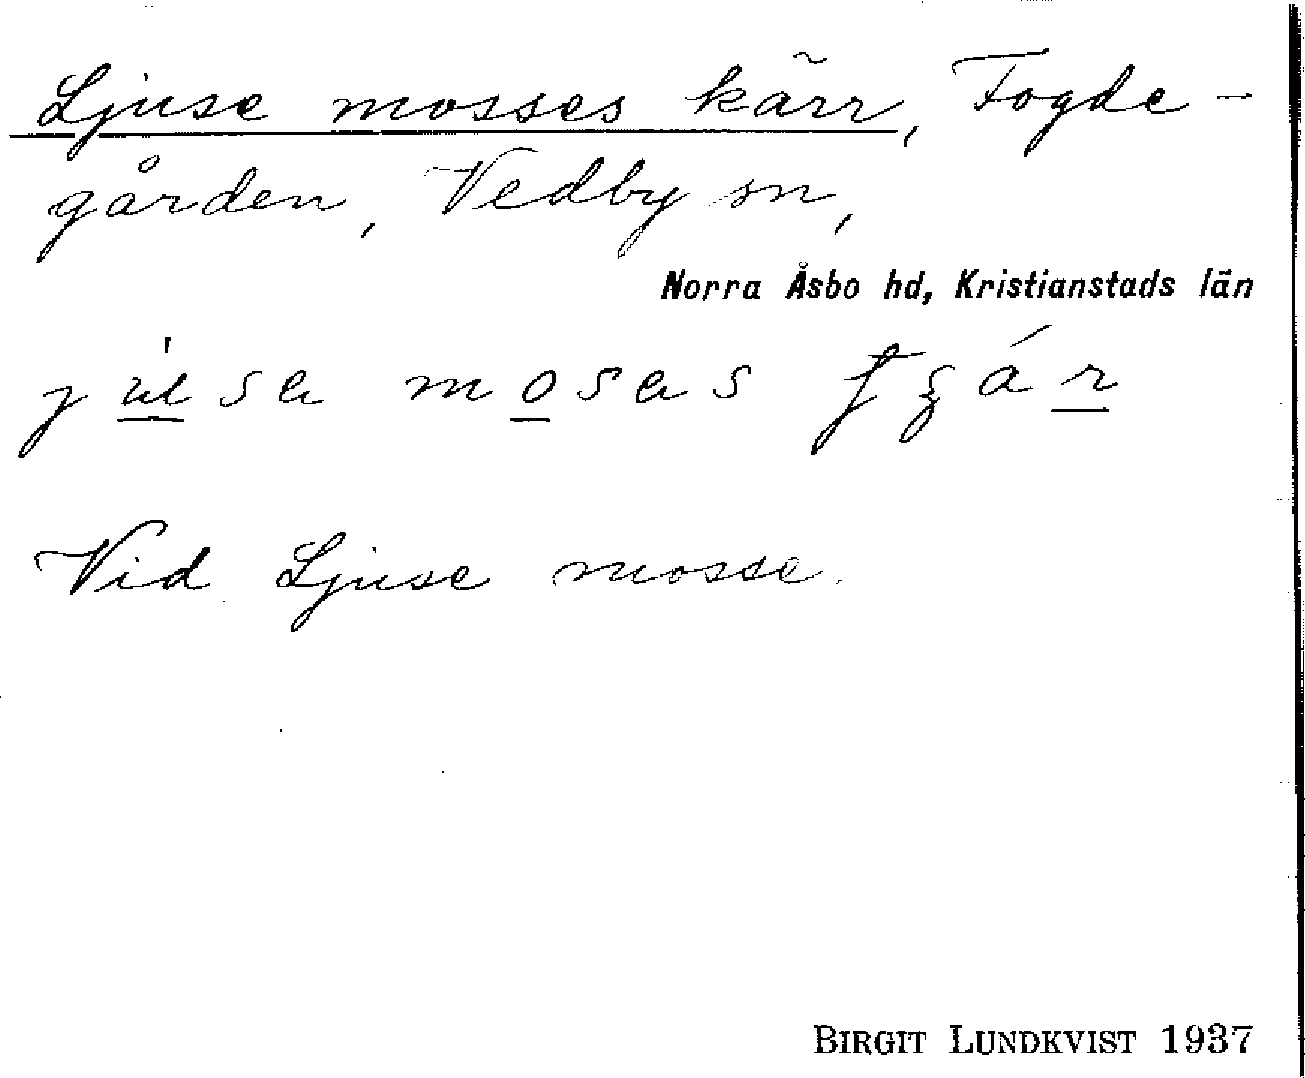 Ljuse mosses kärr, Fogde-
gården, Vedby sn,
Norra Åsbo hd, Kristianstads län
Vid Ljuse mosse.
BIRGIT LUNDKVIST 1937